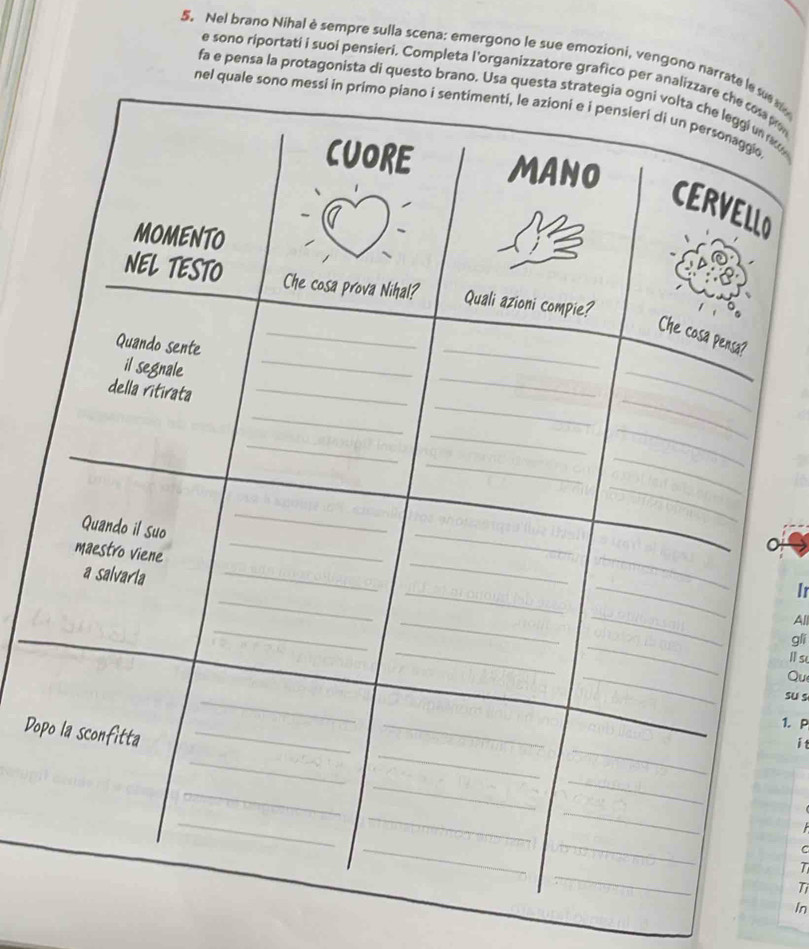 5. Nel brano Nihal è sempre sulla scena: emergono le sue emozioni, vengono narrate le sue
e sono riportati i suoi pensieri. Completa l'organizzatore grafico per analizzare che cosa
fa e pensa la protagonista di questo brano. Usa questa strategia ogni volta che leggi un
nel quale sono messi in primo piano i sentimenti, le azioni e i pensieri di un personaggio.
CUORE
MANO
CERVELLO
MOMENTO
NEL TESTO
Che cosa prova Nihal?
Quali azioni compie?
Che cosa pensa?
Quando sente
il segnale
della ritirata
Quando il suo
maestro viene
a salvarla
Dopo la sconfitta
All
gli
Il
su
1. P
i